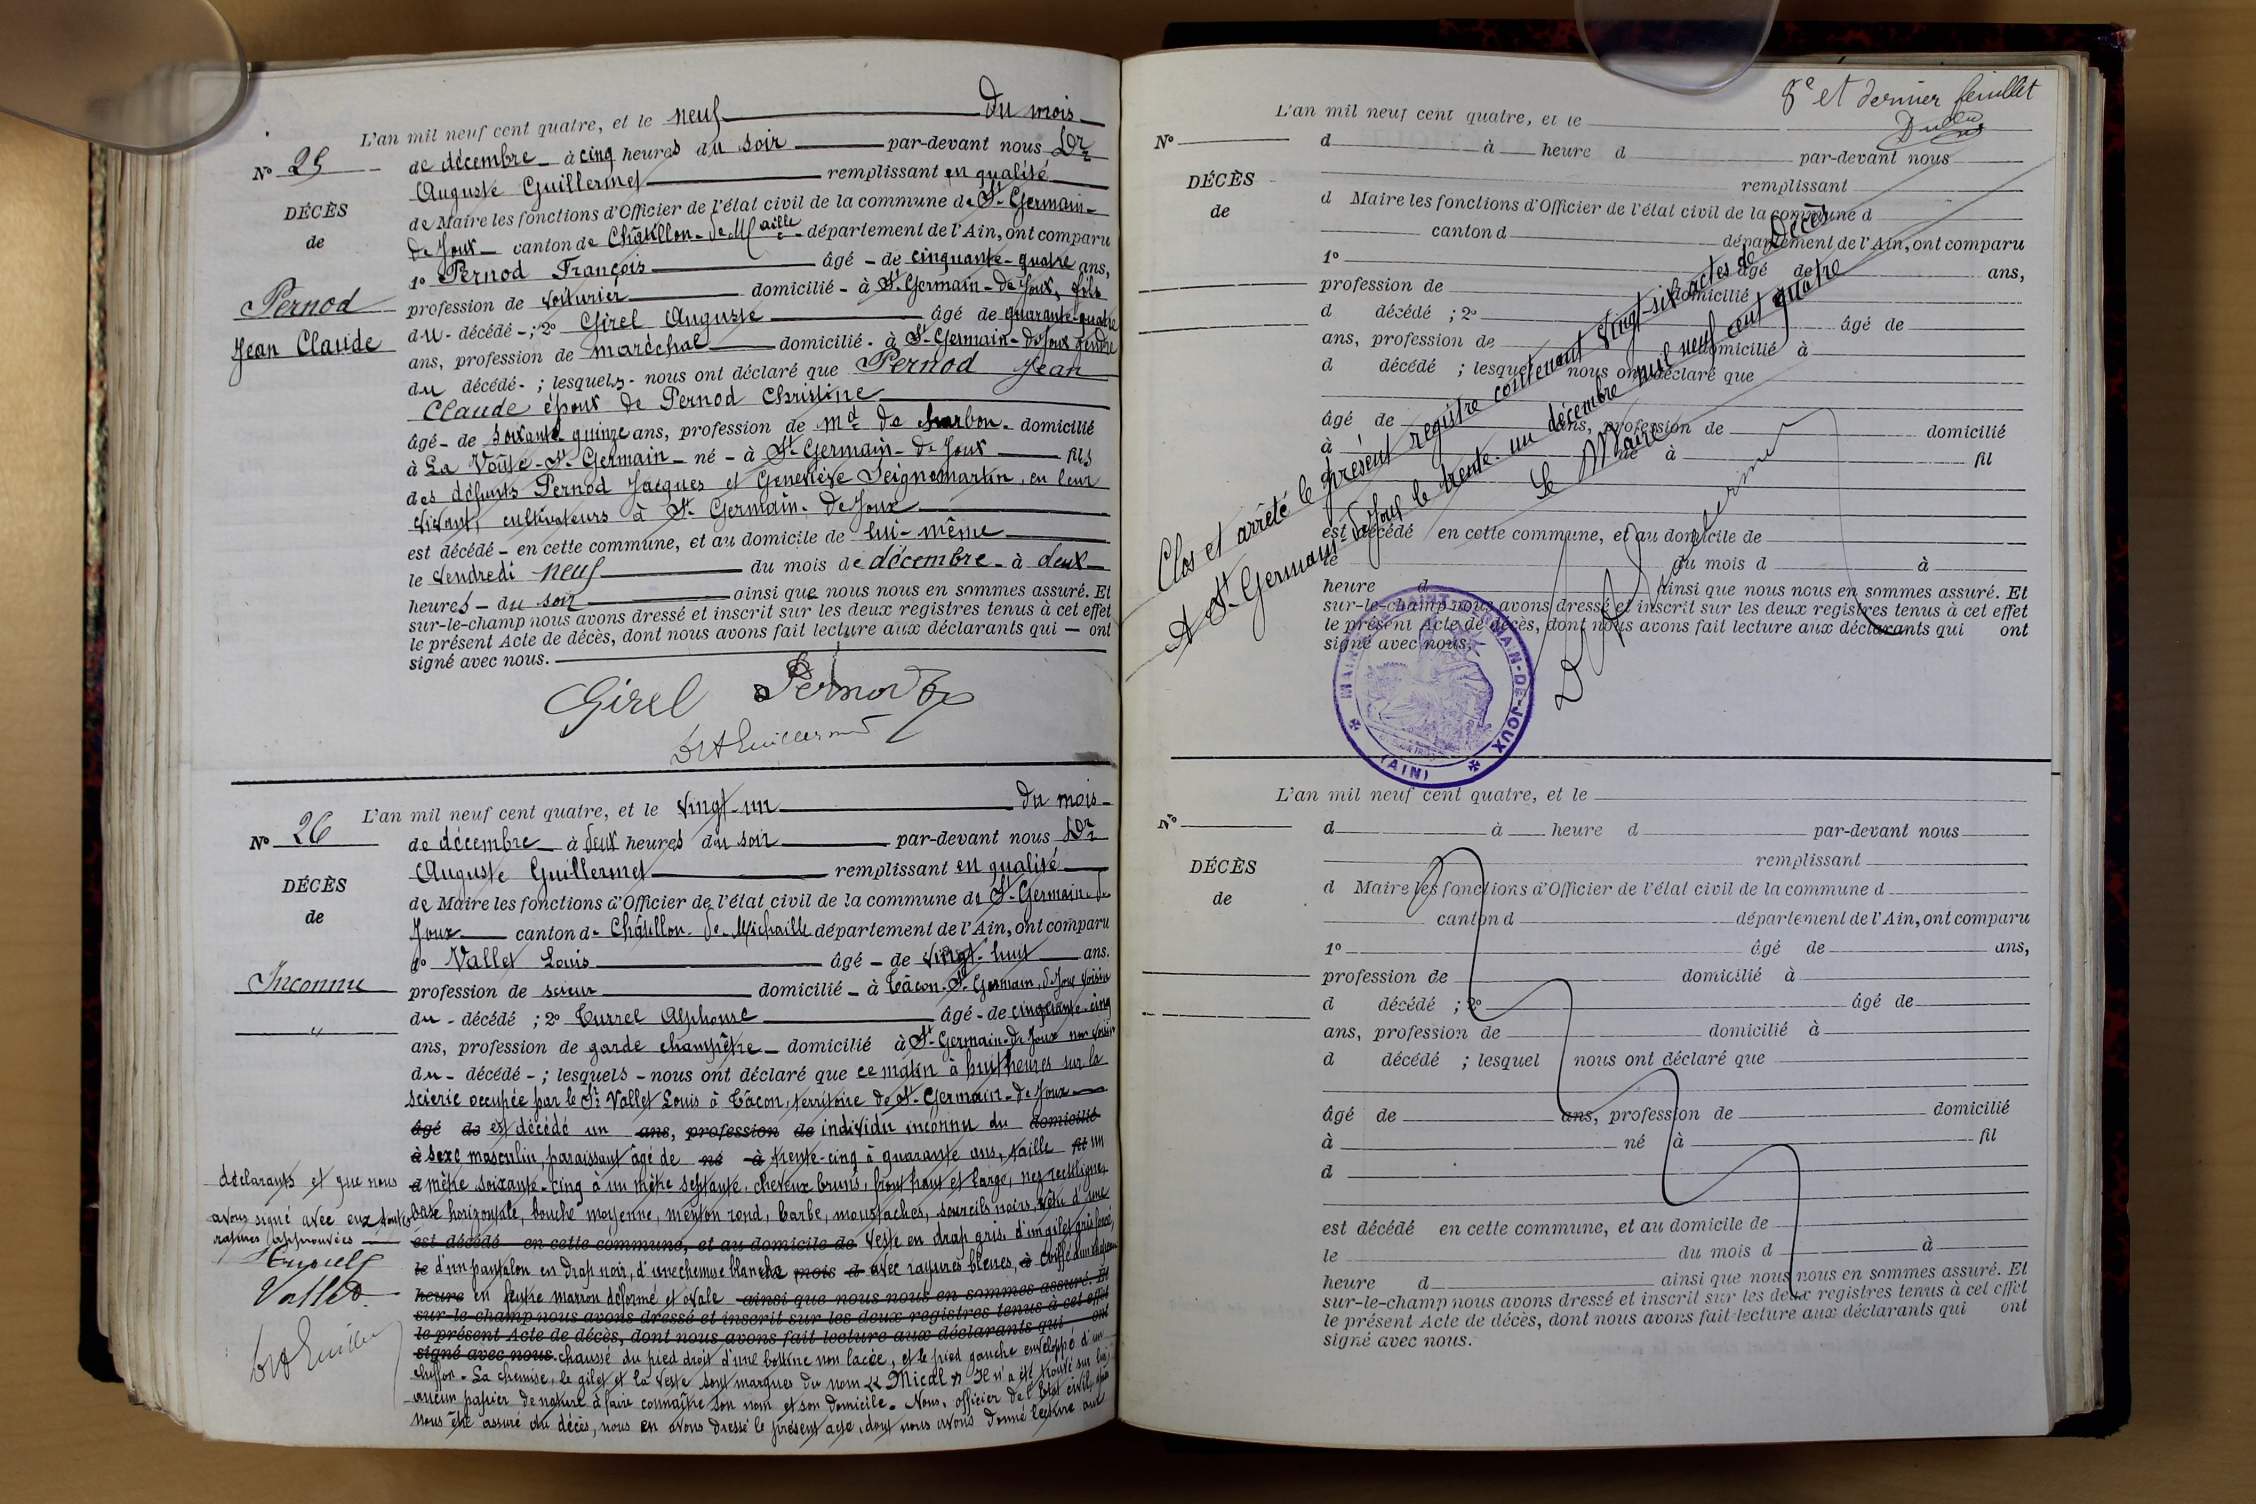 L'an mil neuf cent quatre, et le neuf du mois
No 25
de décembre à cinq heures du soir par-devant nous Dr
Auguste Guillermet remplissant en qualité
DÉCÈS
de Maire les fonctions d'Officier de l'état civil de la commune de St-Germain-
de
de Joux canton de Châtillon-de-Michaille département de l'Ain, ont comparu
1o Pernod François âgé de cinquante-quatre ans,
Pernod
profession de voiturier domicilié à St-Germain-de Joux, fils
Jean Claude
du décédé ; 2o Girel Auguste âgé de quarante-quatre
ans, profession de maréchal domicilié à St-Germain-de Joux gendre
du décédé ; lesquels nous ont déclaré que Pernod Jean
Claude époux de Pernod Christine
âgé de soixante-quinze ans, profession de md de charbon domicilié
à La Voûte-St-Germain né à St-Germain-de Joux fils
des défunts Pernod Jacques et Geneviève Seignemartin, en leur
vivant, cultivateurs à St-Germain-de Joux
est décédé en cette commune, et au domicile de lui-même
le vendredi neuf du mois de décembre à deux
heures du soir ainsi que nous nous en sommes assuré. Et
sur-le-champ nous avons dressé et inscrit sur les deux registres tenus à cet effet
le présent Acte de décès, dont nous avons fait lecture aux déclarants qui ont
signé avec nous.
Girel Pernod
Dr A Guillermet
L'an mil neuf cent quatre, et le vingt-un du mois
No 26
de décembre à deux heures du soir par-devant nous Dr
Auguste Guillermet remplissant en qualité
DÉCÈS
de Maire les fonctions d'Officier de l'état civil de la commune de St-Germain-de
de
Joux canton de Châtillon-de-Michaille département de l'Ain, ont comparu
1o Vallet Louis âgé de vingt-huit ans.
Inconnu
profession de scieur domicilié à Tâcon-St-Germain-de Joux voisin
du décédé ; 2o Turrel Alphonse âgé de cinquante-cinq
"
ans, profession de garde champêtre domicilié à St-Germain-de Joux non voisin
du décédé ; lesquels nous ont déclaré que ce matin à huit heures sur la
scierie occupée par le Sr Vallet Louis à Tâcon, territoire de St-Germain-de Joux
âgé de est décédé un ans, profession de individu inconnu du domicilié
à sexe masculin, paraissant âgé de né à trente-cinq à quarante ans, taille fil un
d mètre soixante-cinq à un mètre septante, cheveux bruns, front haut et large, nez rectiligne
base horizontale, bouche moyenne, menton rond, barbe, moustaches, sourcils noirs, vêtu d'une
est décédé en cette commune, et au domicile de veste en drap gris, d'un gilet gris foncé,
le d'un pantalon en drap noir, d'une chemise blanche mois d avec rayures bleues, à coiffé d'un chapeau
heure en feutre marron déformé et ovale ainsi que nous nous en sommes assuré. Et
sur-le-champ nous avons dressé et inscrit sur les deux registres tenus à cet effet
le présent Acte de décès, dont nous avons fait lecture aux déclarants qui ont
signé avec nous. chaussé du pied droit d'une bottine non lacée, et le pied gauche enveloppé d'un
chiffon. La chemise, le gilet et la veste sont marqués du nom « Mical » Il n'a été trouvé sur lui
aucun papier de nature à faire connaître son nom et son domicile. Nous, officier de l'Etat civil, après
nous être assuré du décès, nous en avons dressé le présent acte, dont nous avons donné lecture aux
déclarants et que nous
avons signé avec eux, toutes
ratures approuvées
Vallet
Dr A Guillermet
8e et dernier feuillet
L'an mil neuf cent quatre, et le
No
d à heure d par-devant nous
DÉCÈS
remplissant
de
d Maire les fonctions d'Officier de l'état civil de la commune d
canton d département de l'Ain, ont comparu
1o âgé de ans,
profession de domicilié
d décédé ; 2o âgé de
ans, profession de domicilié à
d décédé ; lesquel nous ont déclaré que
âgé de ans, profession de domicilié
à né à fil
d
est décédé en cette commune, et au domicile de
le du mois d à
heure d ainsi que nous nous en sommes assuré. Et
sur-le-champ nous avons dressé et inscrit sur les deux registres tenus à cet effet
le présent Acte de décès, dont nous avons fait lecture aux déclarants qui ont
signé avec nous.
Clos et arrêté le présent registre contenant vingt-six actes de Décès
A St-Germain-de Joux le trente-un décembre mil neuf cent quatre
Le Maire
Dr A Guillermet
MAIRIE DE SAINT-GERMAIN-DE-JOUX
(AIN)
L'an mil neuf cent quatre, et le
No
d à heure d par-devant nous
remplissant
DÉCÈS
d Maire les fonctions d'Officier de l'état civil de la commune d
de
canton d département de l'Ain, ont comparu
1o âgé de ans,
profession de domicilié à
d décédé ; 2o âgé de
ans, profession de domicilié à
d décédé ; lesquel nous ont déclaré que
âgé de ans, profession de domicilié
à né à fil
d
est décédé en cette commune, et au domicile de
le du mois d à
heure d ainsi que nous nous en sommes assuré. Et
sur-le-champ nous avons dressé et inscrit sur les deux registres tenus à cet effet
le présent Acte de décès, dont nous avons fait lecture aux déclarants qui ont
signé avec nous.